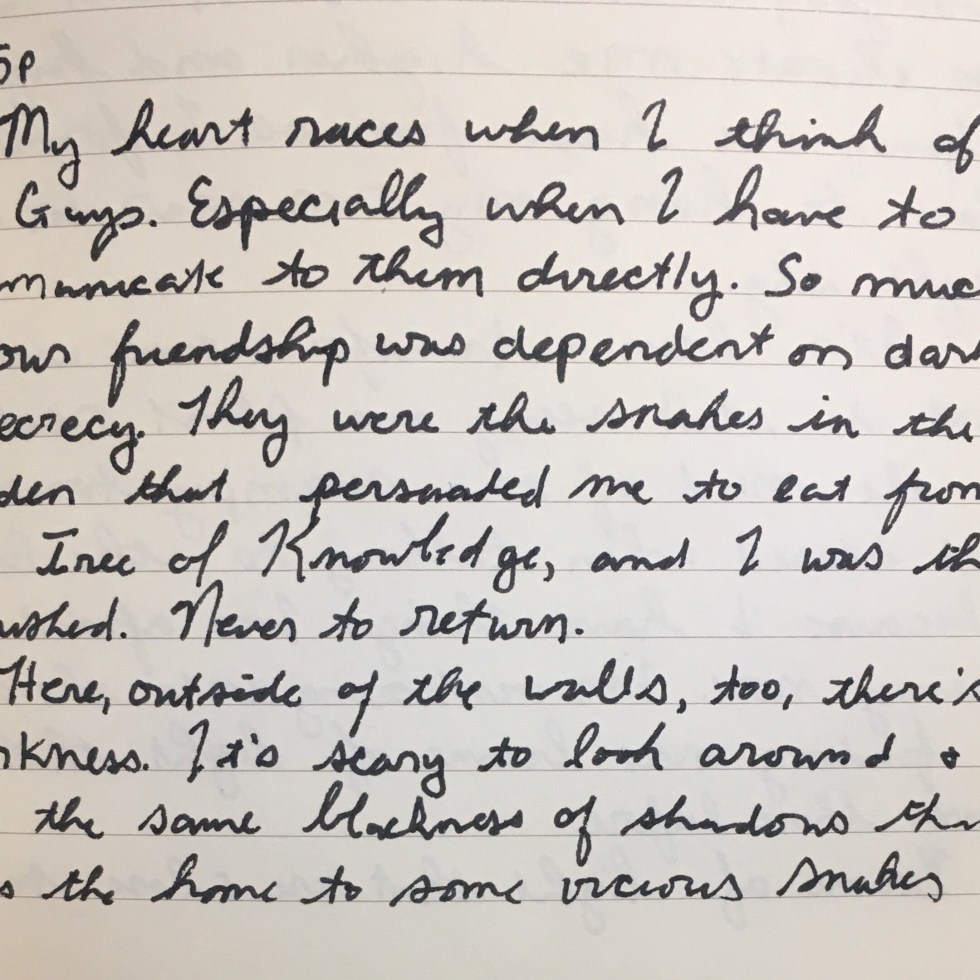 5p
My heart races when I think of
Guys. Especially when I have to
municate to them directly. So muc
our friendship was dependent on dark
ecrecy. They were the snakes in the
den that persuaded me to eat from
Tree of Knowledge, and I was th
ushed. Never to return.
Here, outside of the walls, too, there's
rkness. It's scary to look around &
the same blackness of shadows tha
s the home to some vicious snakes